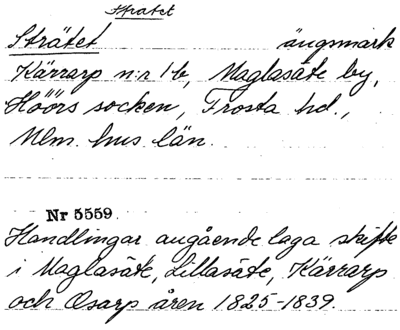 Stratet
Strätet ängsmark
Kärrarp n:r 1 b, Maglasäte by,
Höörs socken, Frosta hd.,
Mlm. hus län.
Nr 5559
Handlingar angående laga skifte
i Maglasäte, Lillasäte, Kärrarp
och Osarp åren 1825-1839.